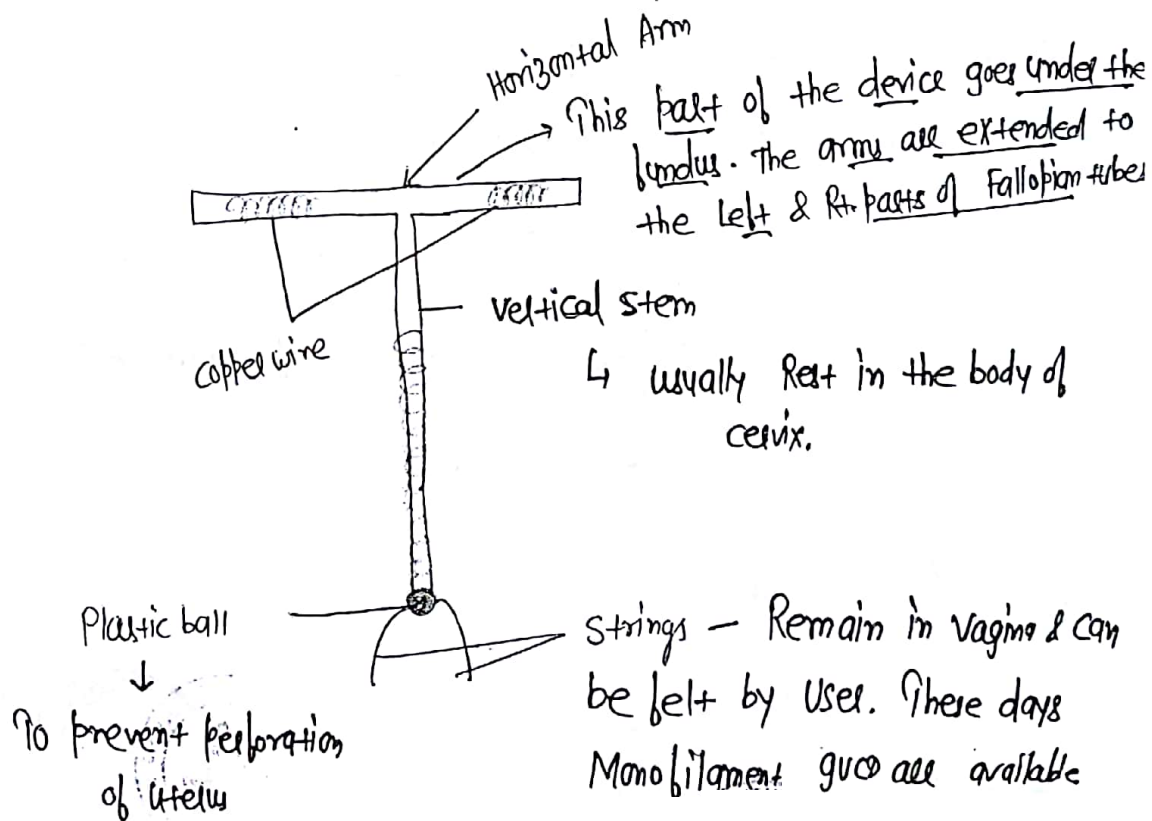 Horizontal Arm
→ This part of the device goes under the
fundus. The arms are extended to
the Left & Rt. parts of Fallopian tubes
copper wire
vertical stem
↳ usually Rest in the body of
cervix.
Plastic ball
↓
To prevent perforation
of uterus
Strings – Remain in vagina & can
be felt by user. These days
Monofilament are available